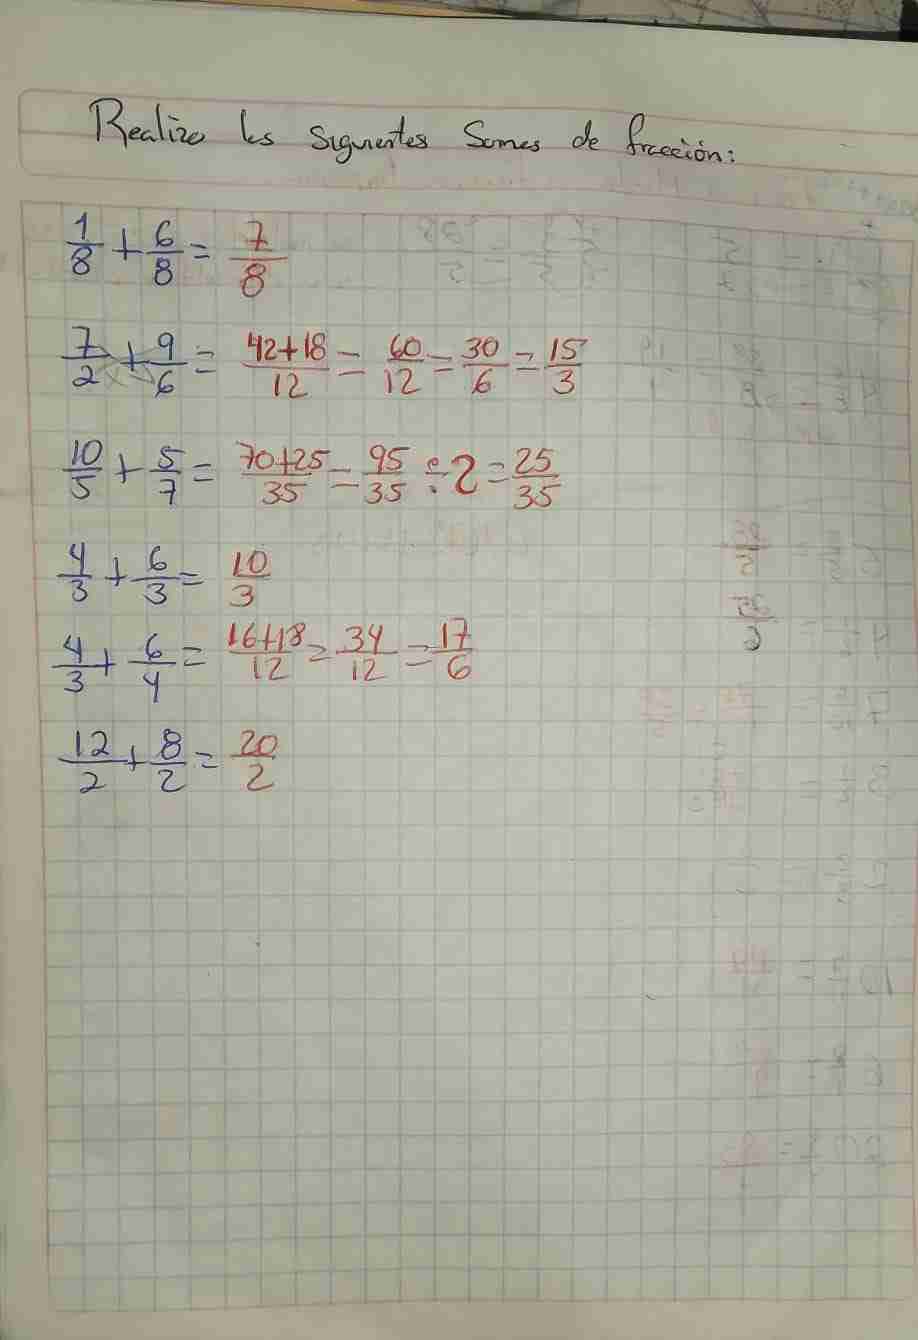 Realizo las siguientes Sumas de fracción:
1/8 + 6/8 = 7/8
7/2 + 9/6 = 42+18/12 = 60/12 = 30/6 = 15/3
10/5 + 5/7 = 70+25/35 = 95/35 ÷ 2 = 25/35
4/3 + 6/3 = 10/3
4/3 + 6/4 = 16+18/12 = 34/12 = 17/6
12/2 + 8/2 = 20/2